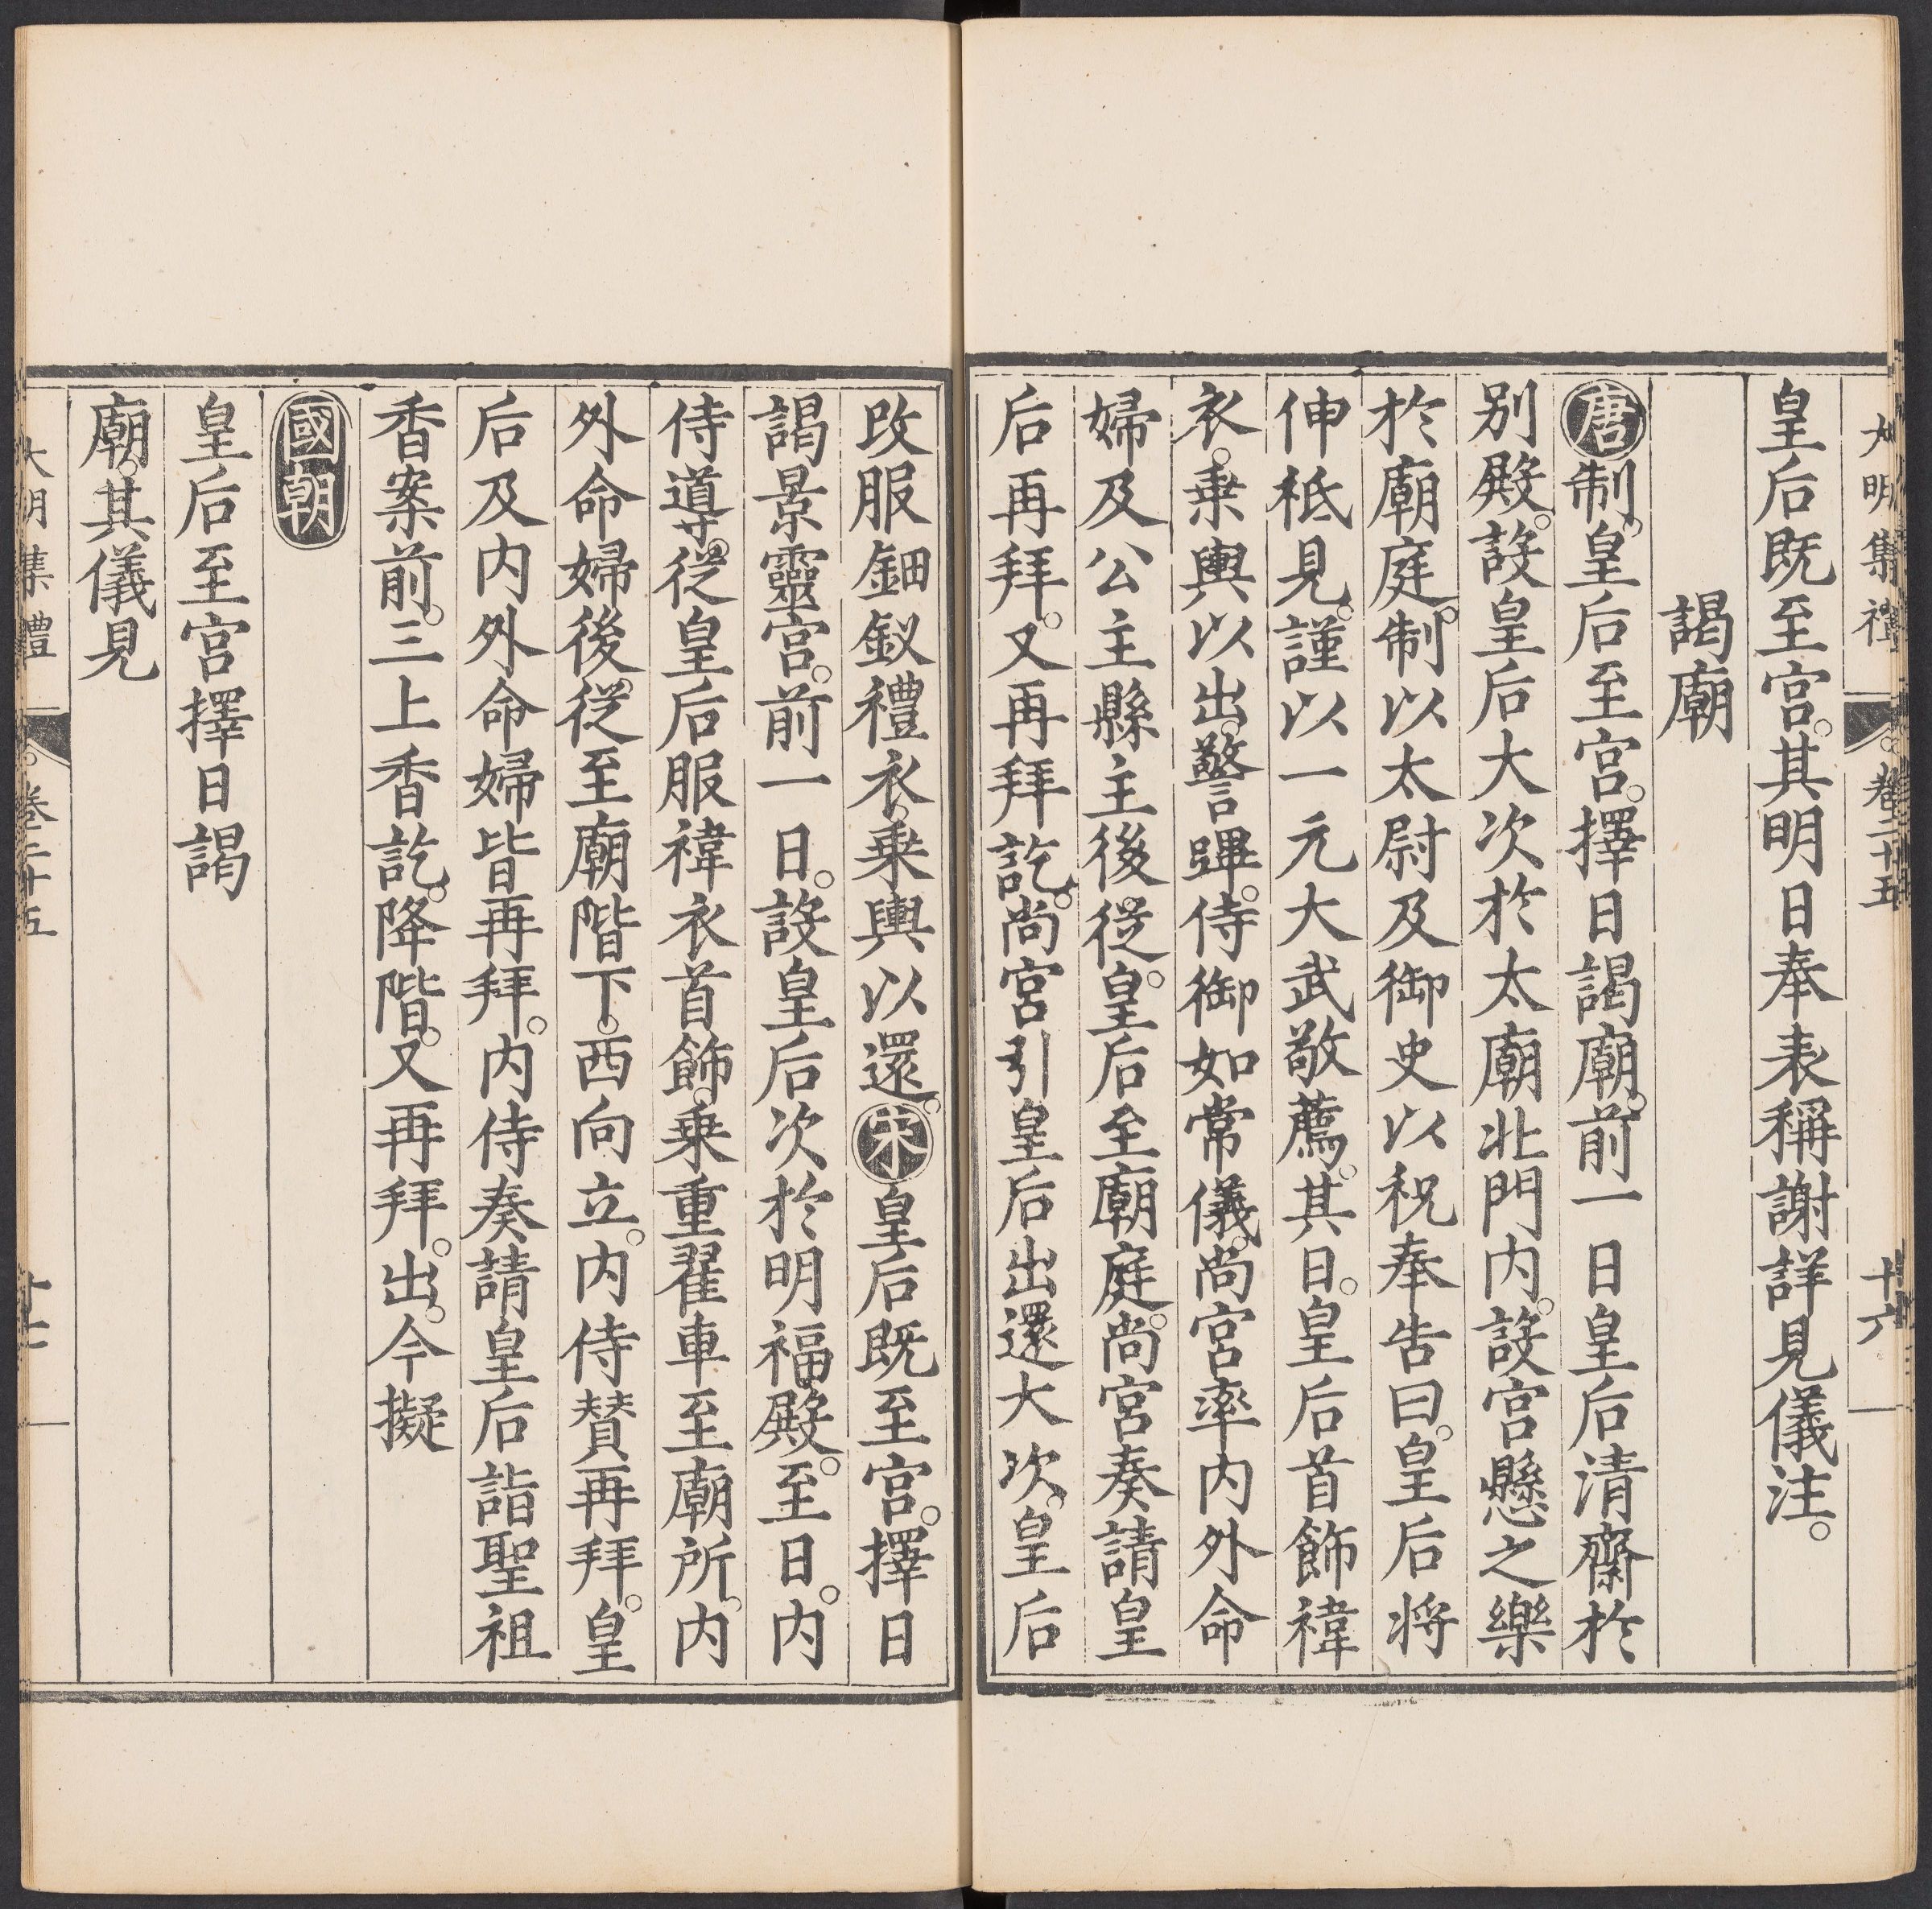 大明集禮 卷二十五 十六
皇后既至宮。其明日奉表稱謝詳見儀注。
謁廟
唐制。皇后至宮。擇日謁廟。前一日皇后清齋於
別殿。設皇后大次於太廟北門内。設宮懸之樂
於廟庭。制以太尉及御史以祝奉告曰。皇后將
伸祗見。謹以一元大武敬薦。其日。皇后首飾褘
衣。乗輿以出。警蹕。侍御如常儀。尚宮率内外命
婦及公主縣主後從。皇后至廟庭。尚宮奏請皇
后再拜。又再拜訖。尚宮引皇后出還大次。皇后
改服鈿釵禮衣。乗輿以還。宋皇后既至宮。擇日
謁景靈宮。前一日。設皇后次於明福殿。至日。内
侍導。從皇后服褘衣首飾。乗重翟車至廟所。内
外命婦後。從至廟階下。西向立。内侍賛再拜。皇
后及内外命婦皆再拜。内侍奏請皇后詣聖祖
香案前。三上香訖。降階。又再拜。出。今擬
國朝
皇后至宮擇日謁
廟。其儀見
大明集禮 卷二十五 十七